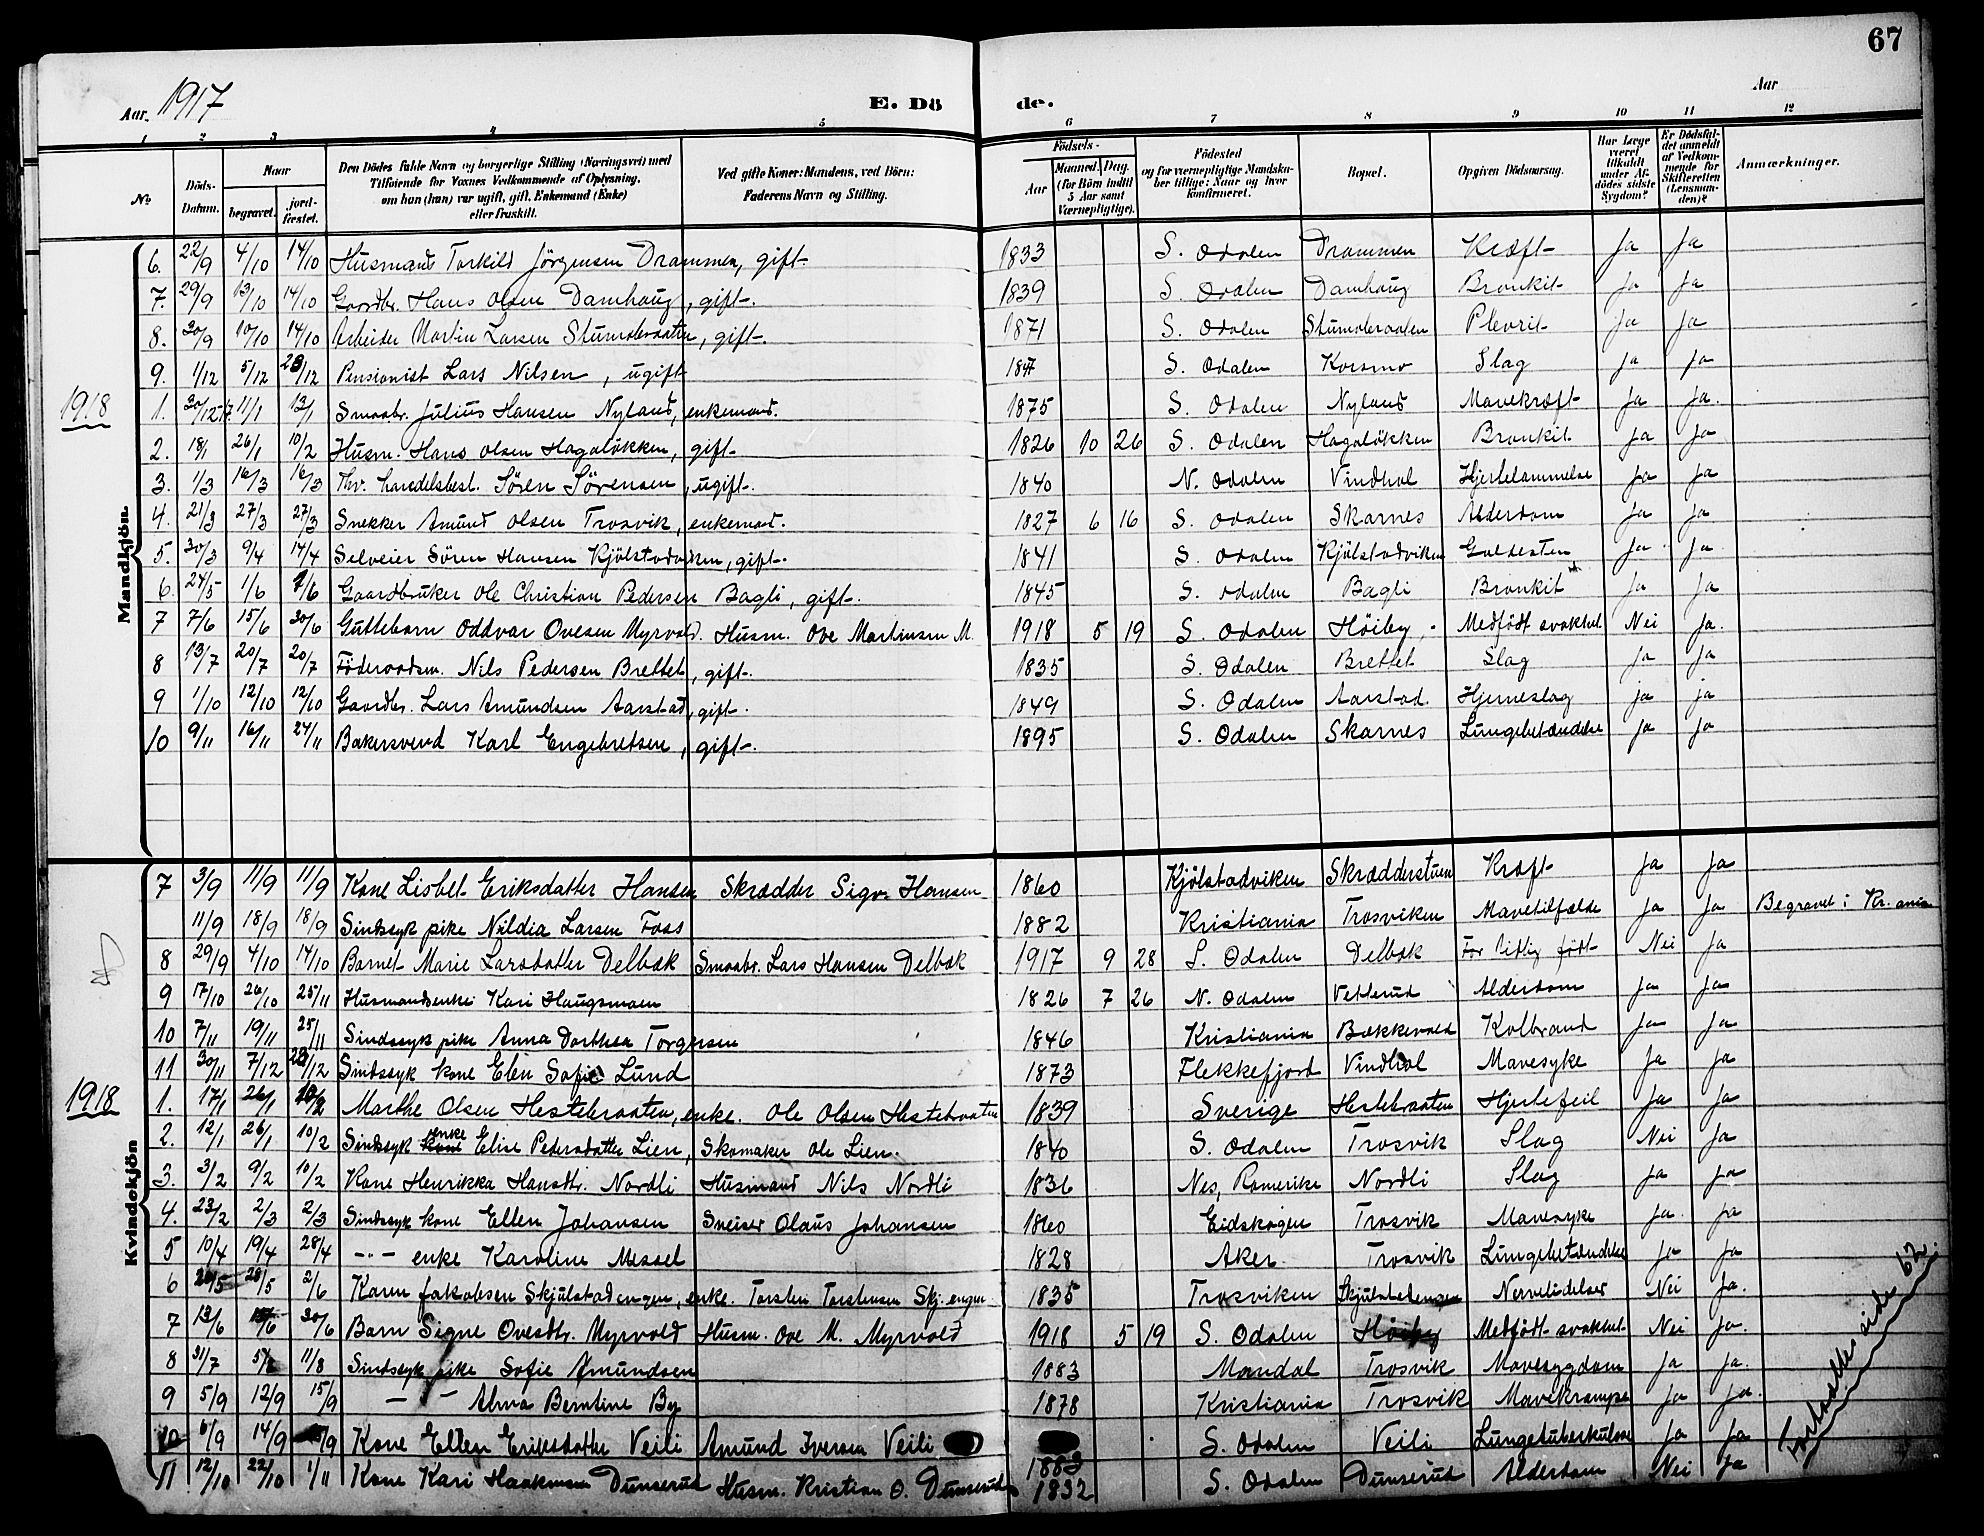 67
Aar. 1917 E. Dö de. Aar
1 2 3 4 5 6 7 8 9 10 11 12
No. Döds-Datum. Naar begravet. jordfæstet. Den Dödes fulde Navn og borgerlige Stilling (Næringsvei) med Tilföiende for Voxnes Vedkommende af Oplysning, om han (hun) var ugift, gift, Enkemand (Enke) eller fraskilt. Ved gifte Koner: Mandens, ved Börn: Faderens Navn og Stilling. Födsels- Aar Maaned. Dag. (for Börn indtil 5 Aar samt Værnepligtige). Födested og for værnepligtige Mandskaber tillige: Naar og hvor konfirmeret. Bopæl. Opgiven Dödsaarsag. Har Læge været tilkaldt under Afdödes sidste Sygdom? Er Dödsfaldet anmeldt af Vedkommende for Skifteretten (Lensmanden)? Anmærkninger.
Mandkjön.
6. 22/9 4/10 14/10 Husmand Torkild Jörgensen Drammen, gift. 1833 S. Odalen Drammen Kræft Ja Ja
7. 29/9 13/10 14/10 Gardbr. Hans Olsen Damhaug, gift. 1839 S. Odalen Damhaug Bronkit Ja Ja
8. 30/9 10/10 14/10 Arbeider Martin Larsen Stumobraaten, gift. 1871 S. Odalen Stumobraaten Plevrit Ja Ja
9. 1/12 5/12 23/12 Pensionist Lars Nilsen, ugift S. Odalen Korsmo Slag Ja Ja
1918
1. 30/12-17. 11/1 13/1 Smaabr. Julius Hansen Nyland, enkemand. 1875 S. Odalen Nyland Mavekræft Ja Ja.
2. 18/1 26/1 10/2 Husm. Hans Olsen Hagalökken, gift. 1826 10 26 S. Odalen Hagalökken Bronkit Ja Ja
3. 1/3 16/3 16/3 Fhv. handelsbest. Sören Sörensen, ugift. 1840 N. Odalen Vindhol Hjertelammelse Ja Ja
4. 21/3 27/3 27/3 Snekker Amund Olsen Trosvik, enkemand. 1827 6 16 S. Odalen Skarnes Alderdom Ja Ja
5. 30/3 9/4 14/4 Selveier Sören Hansen Kjölstadviken, gift. 1841 S. Odalen Kjölstadviken Galdesten Ja Ja
6. 24/5 1/6 /6 Gaardbruker Ole Christian Pedersen Bagli, gift. 1845 S. Odalen Bagli Bronkit Ja Ja
7 7/6 15/6 30/6 Guttebarn Oddvar Ovesen Myrvold. Husm. Ove Martinsen M. 1918 5 19 S. Odalen Höiby Medfödt svakhet Nei Ja.
8 13/7 20/7 20/7 Föderaadsm. Nils Pedersen Brettet, gift. 1835 S. Odalen Brettet Slag Ja Ja
9 1/10 12/10 12/10 Gaardbr. Lars Amundsen Aarstad, gift. 1849 S. Odalen Aarstad. Hjerneslag ja ja
10 9/11 16/11 24/11 Bakersvend Karl Engebretsen, gift. 1895 S. Odalen Skarnes Lungebetændelse Ja Ja
Kvindekjön
7 3/9 11/9 11/9 Kone Lisbet Eriksdatter Hansen Skrædder Sigv. Hansen 1860 Kjölstadviken Skrædderstuen Kræft Ja Ja
11/9 18/9 18/9 Sindssyk pike Nildia Larsen Foss 1882 Kristiania Trosviken Mavetilfælde Ja Ja Begravet i Kr.ania
8 29/9 4/10 14/10 Barnet Marie Larsdatter Delbæk Smaabr. Lars Hansen Delbæk 1917 9 28 S. Odalen Delbæk For tidlig födt Nei Ja
9 17/10 26/10 25/11 Husmandsenke Kari Haugsmoen 1826 7 26 N. Odalen Vetterud Alderdom Ja Ja
10 7/11 19/11 25/11 Sindssyk pike Anna Dorthea Torgersen 1846 Kristiania Bækkevold Kolbrand Ja Ja
11 30/11 7/12 23/12 Sindssyk kone Elen Sofie Lund 1873 Flekkefjord Vindhol Mavesyke Ja Ja
1918
1. 17/1 26/1 10/2 Marthe Olsen Hestebraaten, enke. Ole Olsen Hestebraaten 1839 Sverige Hestebraaten Hjertefeil Ja Ja
2. 12/1 26/1 10/2 Sindssyk enke Elise Pedersdatter Lien, Skomaker Ole Lien. 1840 S. Odalen Trosvik Slag Nei Ja
3. 3/2 9/2 10/2 Kone Henrikka Hansdtr. Nordli Husmand Nils Nordli 1836 Nes, Romerike Nordli Slag Ja Ja
4. 23/2 2/3 2/3 Sindssyk kone Ellen Johansen Sveiser Olaus Johansen 1860 Eidskogen Trosvik Mavesyke Ja. Ja
5 10/4 19/4 28/4 -"- enke Karoline Messel 1828 Aker. Trosvik Lungebetændelse Ja Ja
6 /5 28/5 2/6 Karen Jakobsen Skjulstadengen, enke. Torsten Torstensen Skj.engen 1835 Trosviken Skjulstadengen Nervelidelser Nei Ja.
7 13/6 /6 30/6 Barn Signe Ovesdtr. Myrvold Husm. Ove M. Myrvold 1918 5 19 S. Odalen Höiby Medfödt svakhet Nei Ja.
8 31/7 11/8 Sindssyk pike Sofie Amundsen 1883 Mandal Trosvik Mavesygdom Ja Ja.
9 5/9 12/9 15/9 — " — Alma Berntine By 1878 Kristiania Trosvik Mavekrampe Ja Ja.
10 6/9 14/9 /9 Kone Ellen Eriksdatter Veili Amund Iversen Veili 1883 S. Odalen Veili Lungetuberkulose Ja Ja
11 12/10 22/10 1/11 Kone Kari Haakensen Dunserud Husm. Kristian O. Dunserud 1832 S. Odalen Dunserud Alderdom Nei Ja
Fortsættes side 62.